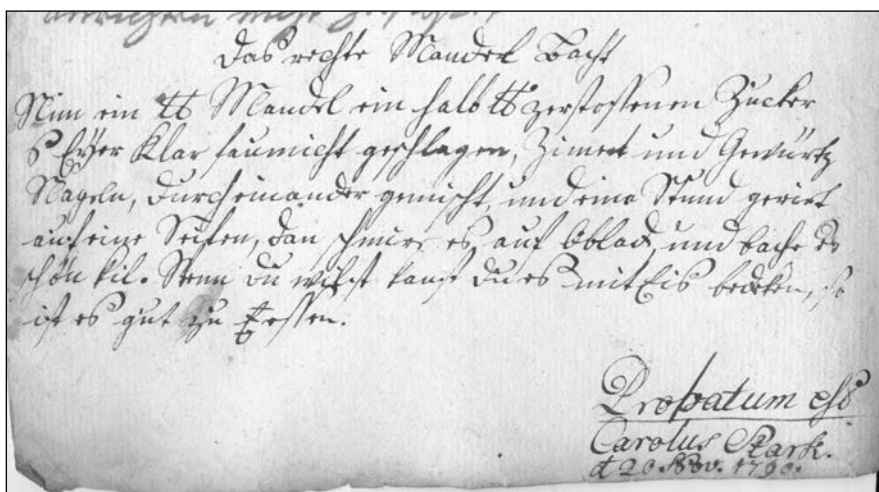 Das rechte Mandel Bacht
Nim ein ℔ Mandel ein halb ℔ zerstossenen Zucker
Eyer Klar faumicht geschlagen, Zimet und Gewürtz
Nägeln, durcheinander gemischt, und eine Stund gerirt
auf eine Seiten, dan schmirs es, auf Oblad, und bache es
schön kil. Wenn du wilst kanst du es mit Eis bedeken, so
ist es gut zu Eessen.
Probatum est
Carolus Stark.
d 20 Nov. 1790.